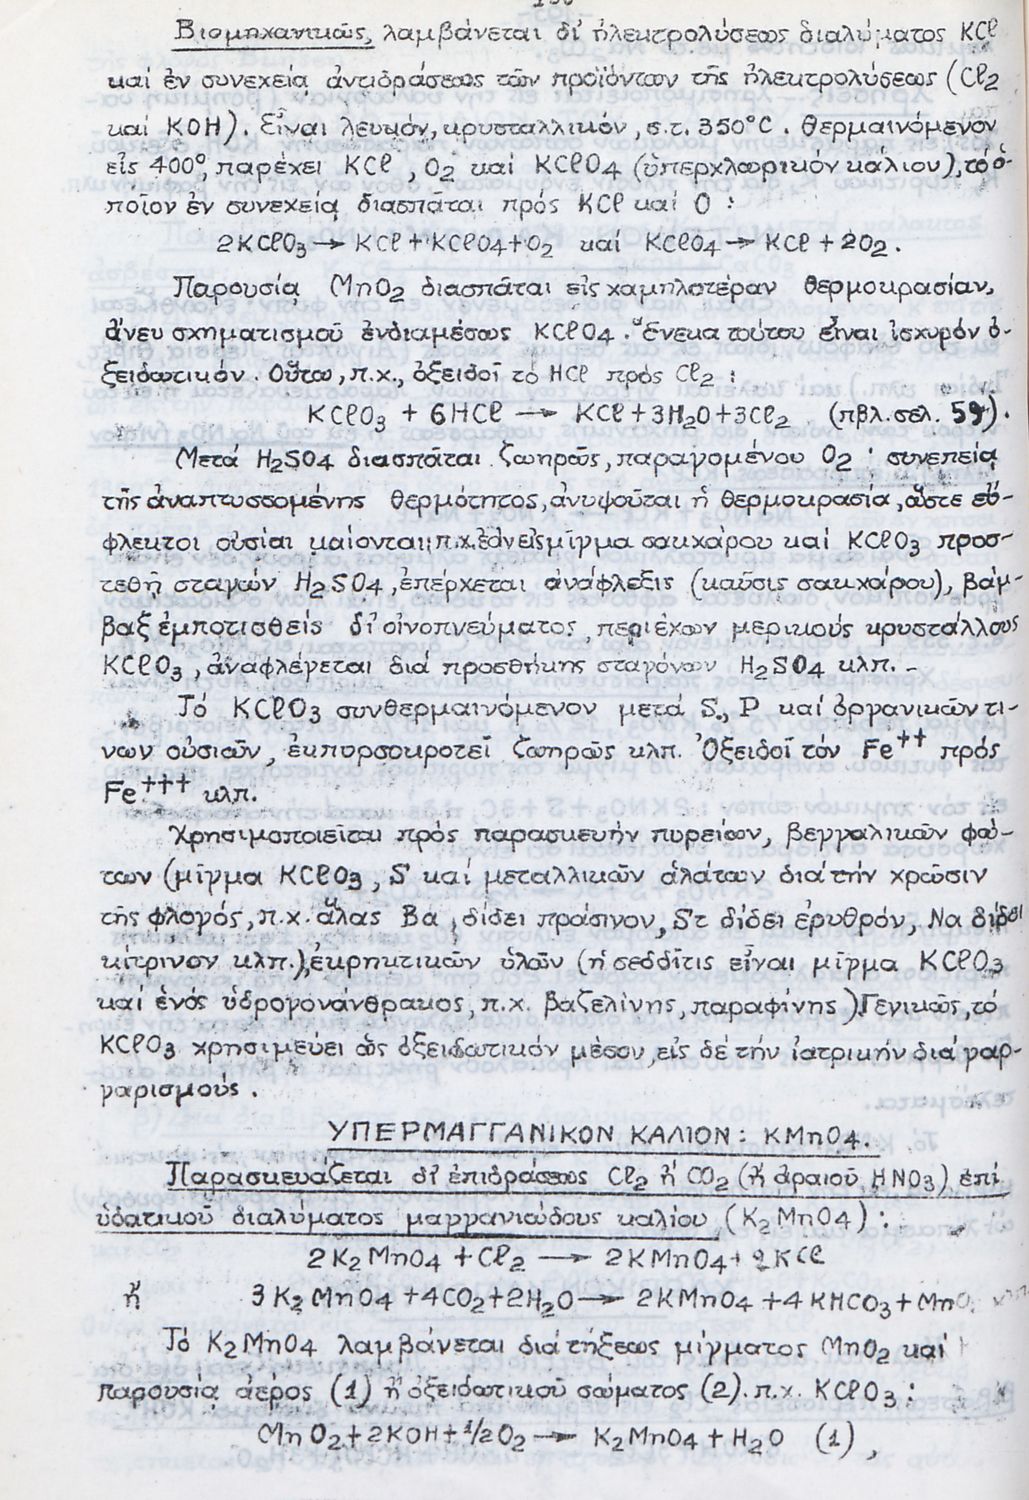 Βιομηχανικῶς, λαμβάνεται δι' ἠλεκτρολύσεως διαλύματος KCl
καί ἐν συνεχείᾳ ἀντιδράσεως τῶν προϊόντων τῆς ἠλεκτρολύσεως (Cl2
καί KOH). Εἶναι λευκόν, κρυσταλλικόν, σ.τ. 350°C. Θερμαινόμενον
εἰς 400°, παρέχει KCl, O2 καί KClO4 (ὑπερχλωρικόν καλιον), τό ὁ-
ποῖον ἐν συνεχείᾳ διασπᾶται πρός KCl καί O :
2KClO3 → KCl + KClO4 + O2 καί KClO4 → KCl + 2O2.
Παρουσίᾳ MnO2 διασπᾶται εἰς χαμηλοτέραν θερμοκρασίαν,
ἄνευ σχηματισμοῦ ἐνδιαμέσως KClO4. Ἕνεκα τούτου εἶναι ἰσχυρόν ὀ-
ξειδωτικόν. Οὕτω, π.χ., ὀξειδοῖ τό HCl πρός Cl2 :
KClO3 + 6HCl → KCl + 3H2O + 3Cl2 (πβλ. σελ. 59).
Μετά H2SO4 διασπᾶται ζωηρῶς, παραγομένου O2 : συνεπείᾳ
τῆς ἀναπτυσσομένης θερμότητος, ἀνυψοῦται ἡ θερμοκρασία, ὥστε εὔ-
φλεκτοι οὐσίαι καίονται, π.χ. ἐάν εἰς μῖγμα σακχάρου καί KClO3 προσ-
τεθῇ σταγών H2SO4, ἐπέρχεται ἀνάφλεξις (καῦσις σακχάρου), βάμ-
βαξ ἐμποτισθείς δι' οἰνοπνεύματος περιέχων μερικούς κρυστάλλους
KClO3, ἀναφλέγεται διά προσθήκης σταγόνων H2SO4 κλπ. -
Τό KClO3 συνθερμαινόμενον μετά S, P καί ὀργανικῶν τι-
νων οὐσιῶν, ἐκπυρσοκροτεῖ ζωηρῶς κλπ. Ὀξειδοῖ τόν Fe++ πρός
Fe+++ κλπ.
Χρησιμοποιεῖται πρός παρασκευήν πυρείων, βεγγαλικῶν φώ-
των (μῖγμα KClO3, S καί μεταλλικῶν ἁλάτων διά τήν χρῶσιν
τῆς φλογός, π.χ. ἅλας Ba δίδει πράσινον, Sτ δίδει ἐρυθρόν, Na δίδει
κίτρινον κλπ.), ἐκρηκτικῶν ὑλῶν (ἡ σεδδίτις εἶναι μῖγμα KClO3
καί ἑνός ὑδρογονάνθρακος, π.χ. βαζελίνης, παραφίνης). Γενικῶς, τό
KClO3 χρησιμεύει ὡς ὀξειδωτικόν μέσον, εἰς δέ τήν ἰατρικήν διά γαρ-
γαρισμούς.
ΥΠΕΡΜΑΓΓΑΝΙΚΟΝ ΚΑΛΙΟΝ: KMnO4.
Παρασκευάζεται δι' ἐπιδράσεως Cl2 ἤ CO2 (ἤ ἀραιοῦ HNO3) ἐπί
ὑδατικοῦ διαλύματος μαγγανιώδους καλίου (K2MnO4) :
2K2MnO4 + Cl2 → 2KMnO4 + 2KCl
ἤ 3K2MnO4 + 4CO2 + 2H2O → 2KMnO4 + 4KHCO3 + MnO
Τό K2MnO4 λαμβάνεται διά τήξεως μίγματος MnO2 καί
παρουσίᾳ ἀέρος (1) ἤ ὀξειδωτικοῦ σώματος (2). π.χ. KClO3 :
MnO2 + 2KOH + 1/2O2 → K2MnO4 + H2O (1),